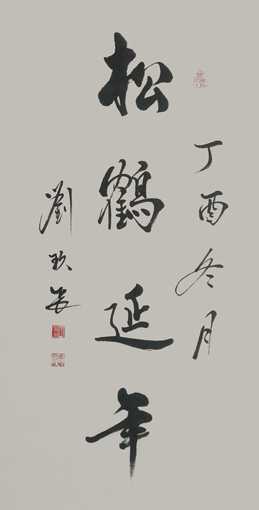 丁酉冬月
松鶴延年
劉